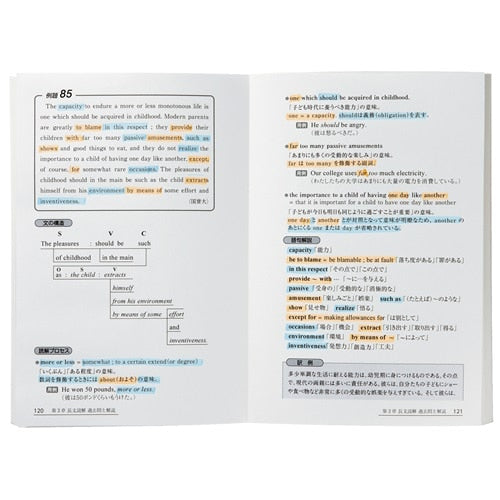 例題 85
The capacity to endure a more or less monotonous life is
one which should be acquired in childhood. Modern parents
are greatly to blame in this respect ; they provide their
children with far too many passive amusements, such as
shows and good things to eat, and they do not realize the
importance to a child of having one day like another, except,
of course, for somewhat rare occasions. The pleasures of
childhood should in the main be such as the child extracts
himself from his environment by means of some effort and
inventiveness.
文の構造
S V C
The pleasures : should be such
of childhood in the main
O S V
as : the child : extracts
himself
from his environment
by means of some effort
and
inventiveness
読解プロセス
more or less = somewhat ; to a certain extent(or degree)
「いくぶん」「ある程度」の意味。
数詞を修飾するときには about(およそ)の意味。
He won 50 pounds, more or less.
(彼は50ポンドくらいもうけた。)
120 第3章 長文読解 過去問と解説
one which should be acquired in childhood.
「子ども時代に養うべき能力」の意味。
one = a capacity. shouldは義務(obligation)を表す。
He should be angry.
(彼は怒るべきだ。)
far too many passive amusements
「あまりにも多くの受動的な楽しみ」の意味。
far は too many を修飾する副詞。
Our college uses far too much electricity.
(わたしたちの大学はあまりにも大量の電力を消費している。)
the importance to a child of having one day like another=
= that it is important for a child to have one day like another
「子どもが今日も明日も同じように過ごすことが重要」の意味。
one day と another が対照となっていて意味が明瞭なため、another の
あとにくる one または day が省略されている。
語句解説
capacity「能力」
be to blame = be blamable ; be at fault「落ち度がある」「罪がある」
in this respect「その点で」「この点で」
provide ~ with …「~に…を与える」
passive「受身の」「受動的な」「消極的な」
amusement「楽しみごと」「娯楽」 such as「(たとえば)~のような」
show「見せ物」 realize「悟る」
except for = making allowances for「は別として」
occasions「場合」「機会」 extract「引き出す」「取り出す」「得る」
environment「環境」 by means of ~「~によって」
inventiveness「発想力」「創造力」「工夫」
訳 例
多少単調な生活に耐える能力は、幼児期に身につけるものである。その
点で、現代の両親には多いに責任がある。彼らは、自分たちの子どもにショー
や食べ物など非常に多くの受動的な娯楽を与えすぎている。そして彼らは、
第3章 長文読解 過去問と解説 121